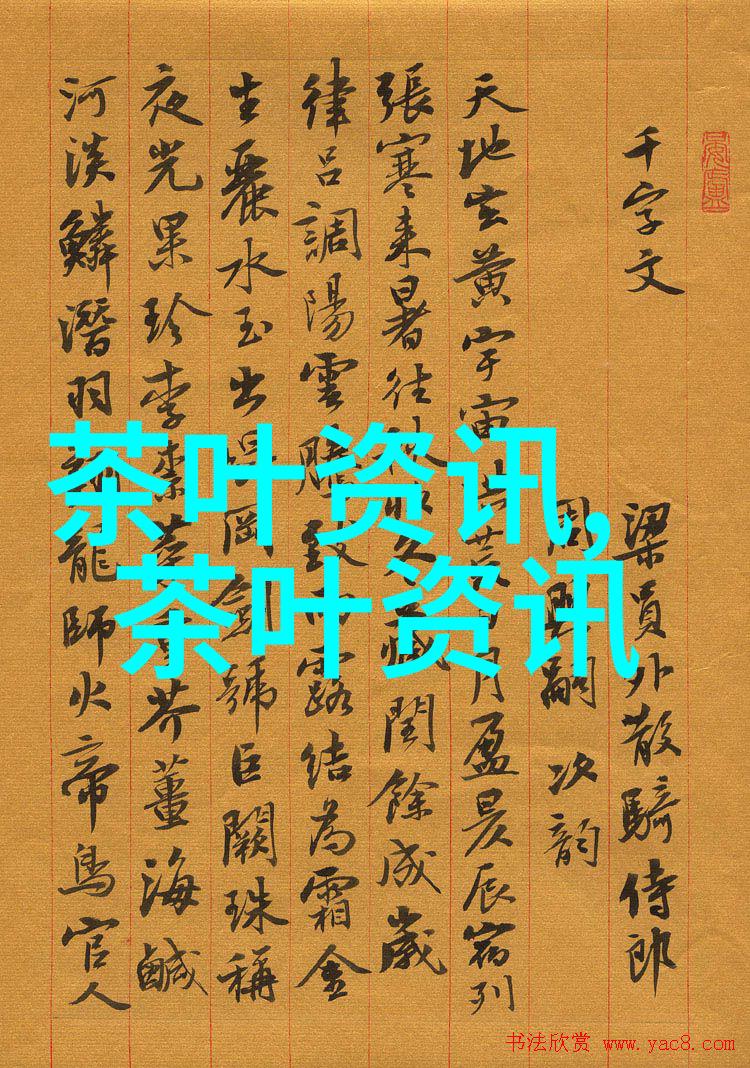 千字文
梁員外散騎侍郎
周興嗣 次韵
天地玄黄宇宙洪荒日月盈昃辰宿列
張寒来暑往秋收冬藏閏餘成歲
律吕調陽雲騰致雨露結為霜金
生麗水玉出崑岡劍號巨闕珠稱
夜光果珍李柰菜重芥薑海鹹
河淡鱗潛羽翔龍師火帝鳥官人
茶叶资讯,
茶叶资讯
书法欣赏 www.yac8.com